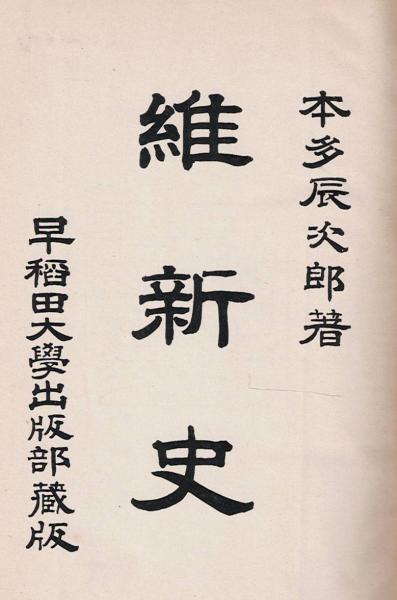 本多辰次郎著
維新史
早稲田大學出版部藏版